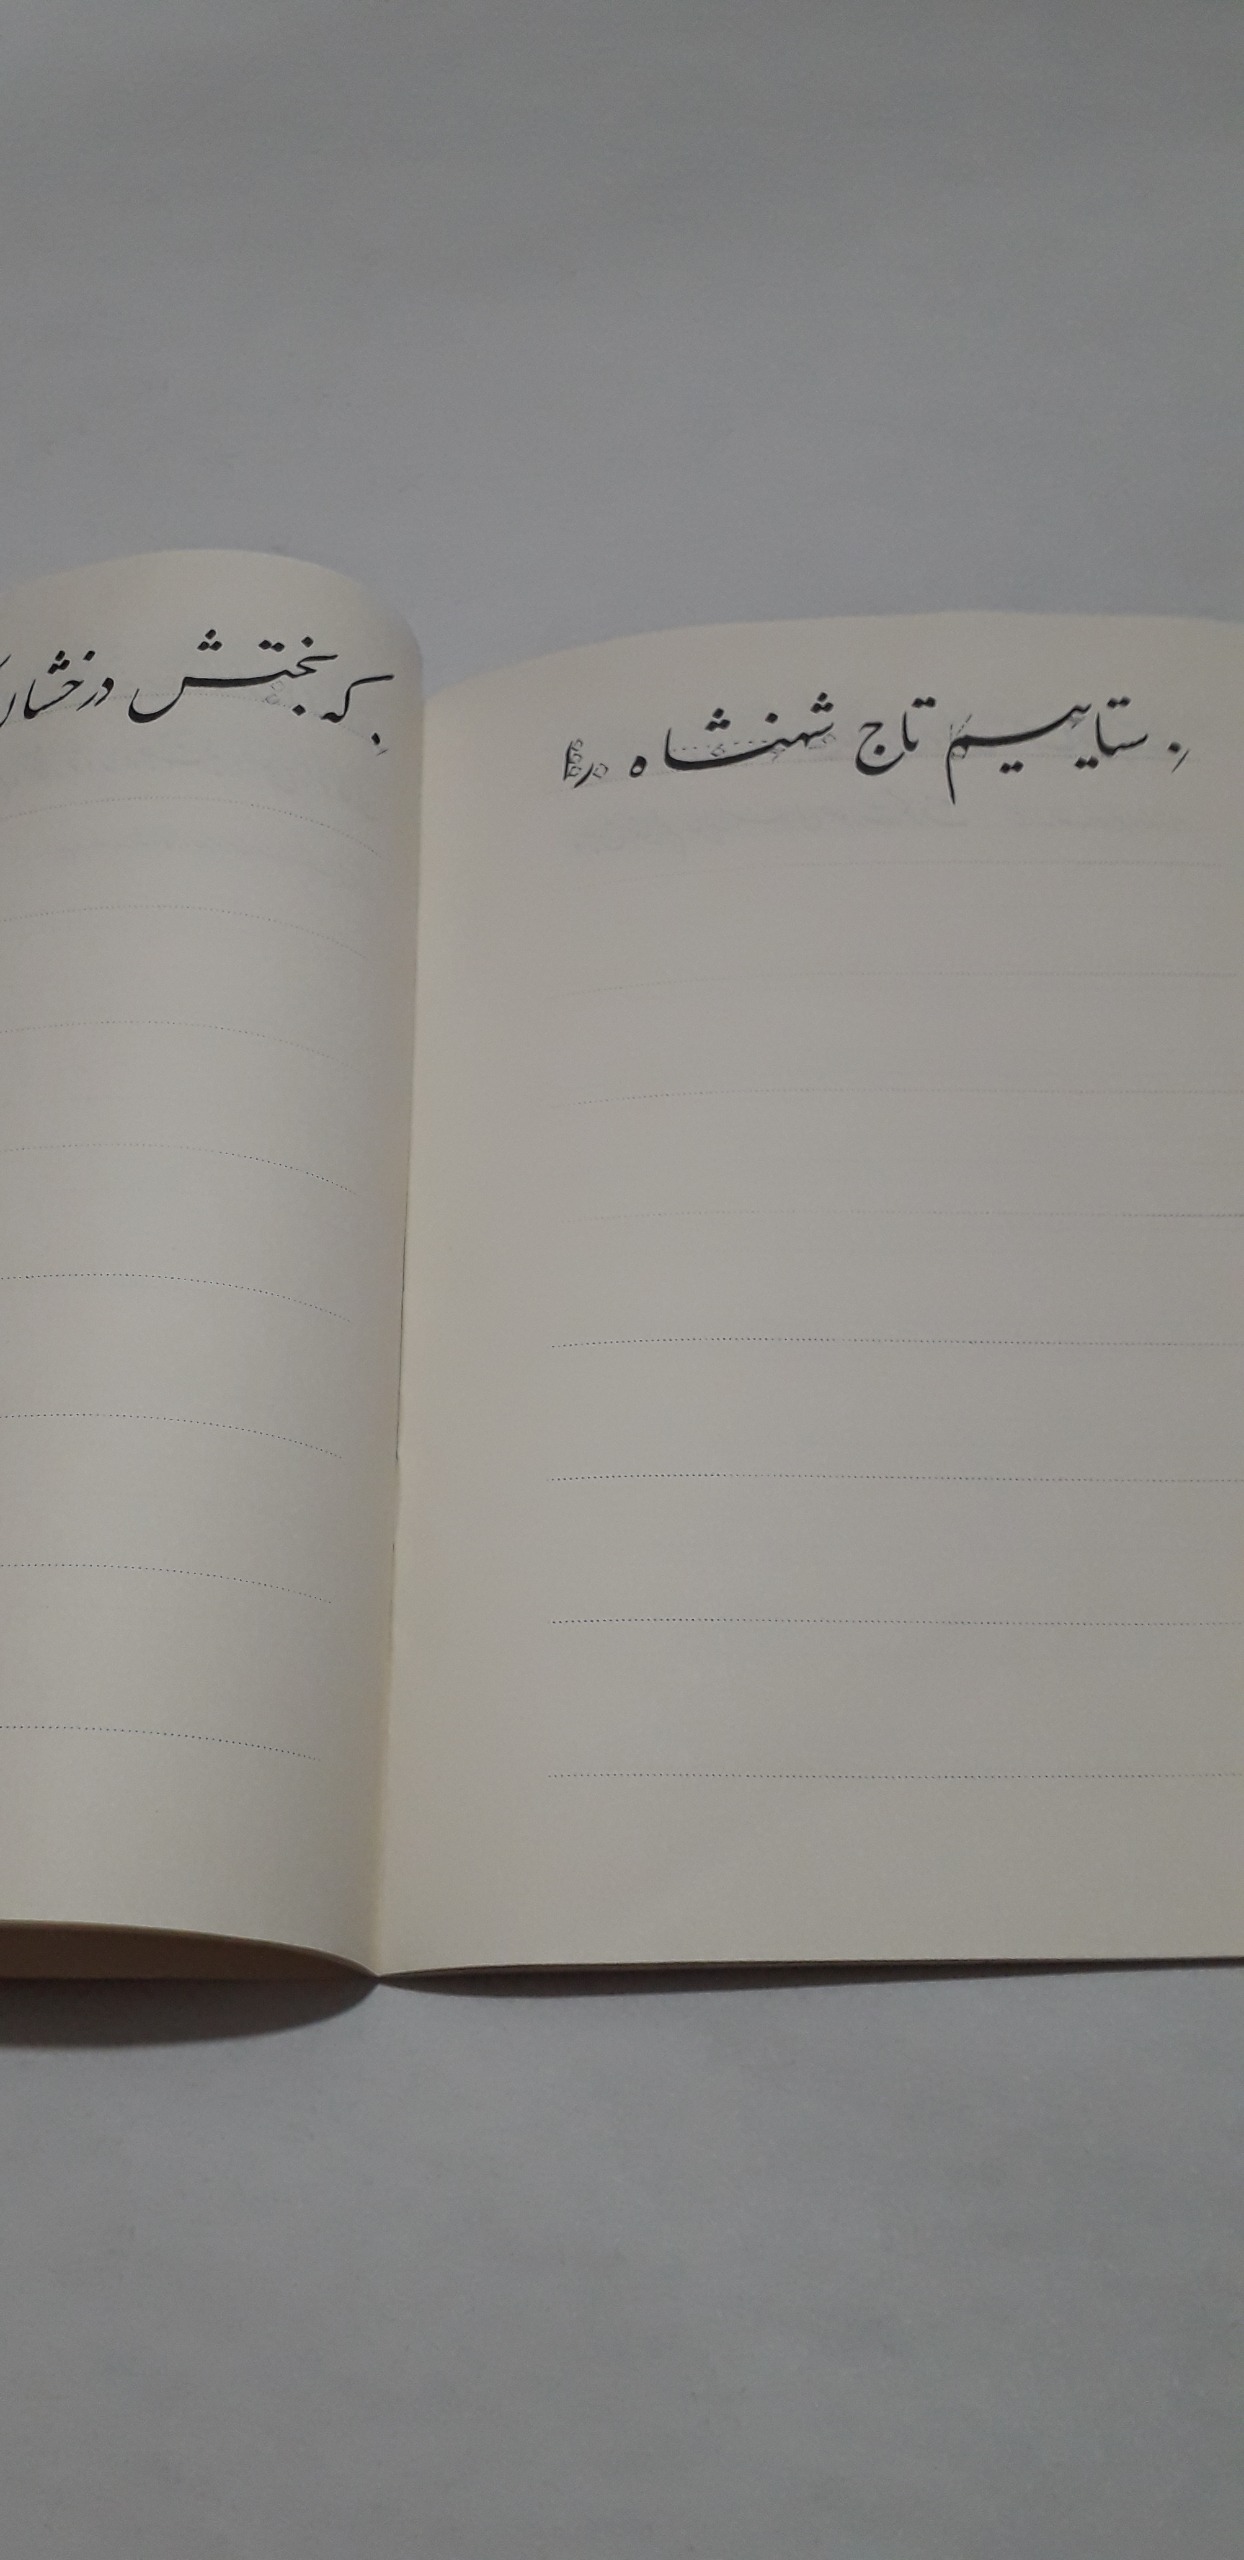 ستاییم تاج شهنشاه را
که بختش درخشان